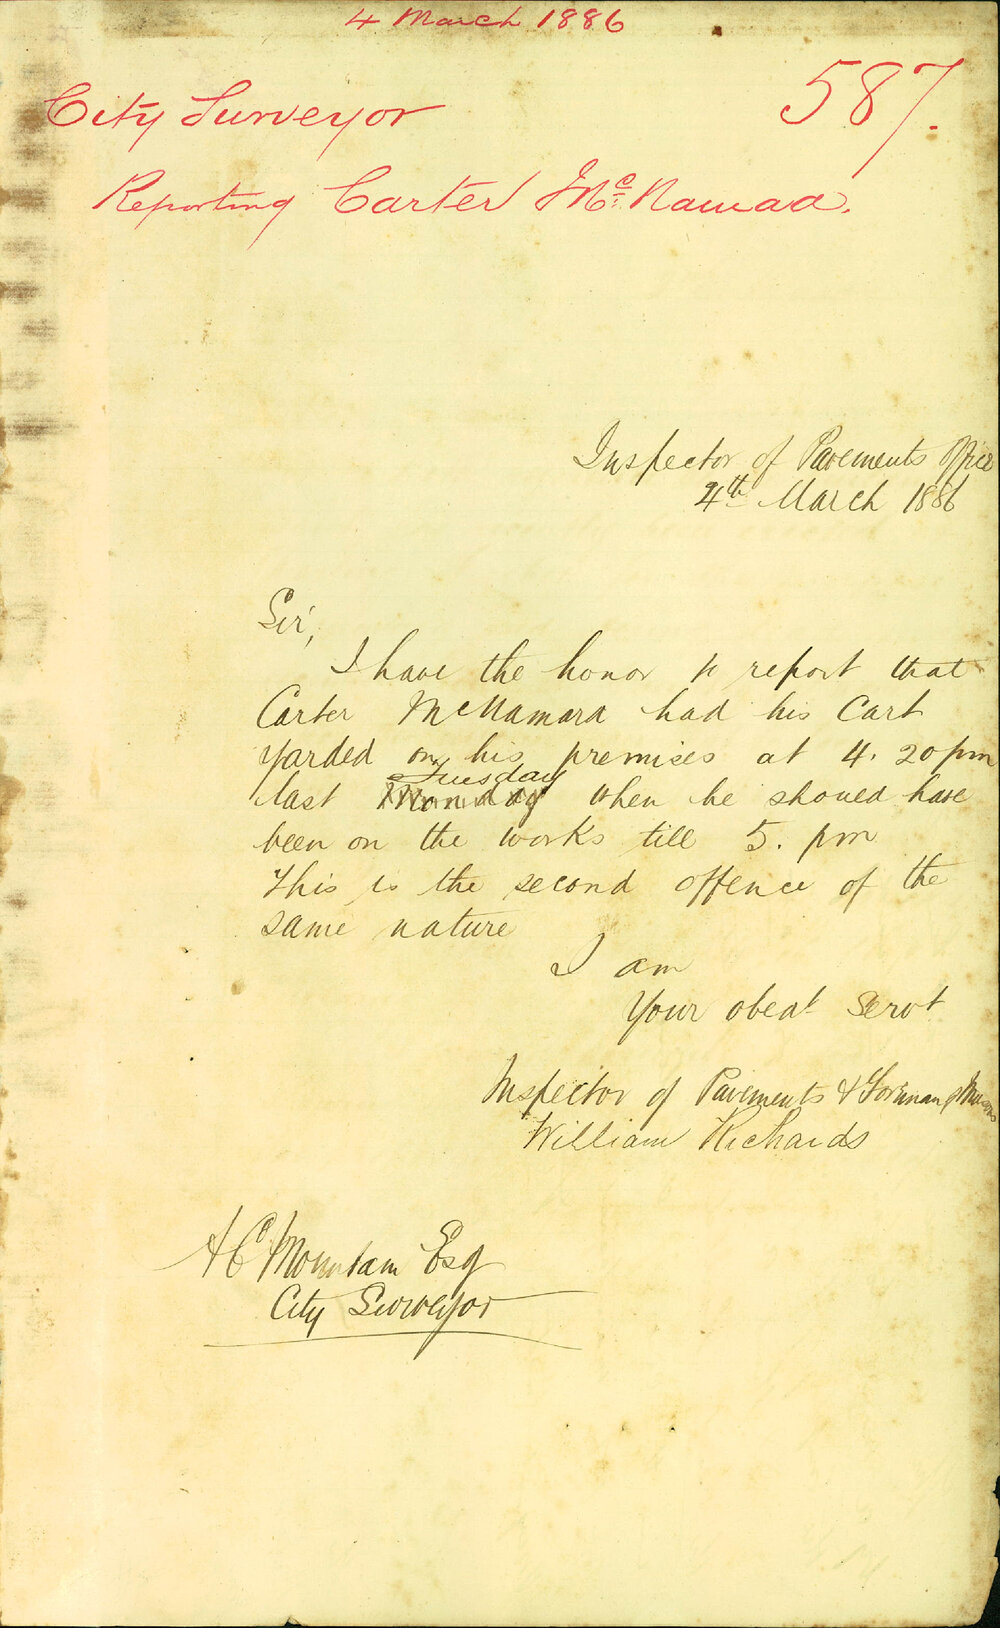 4 March 1886
587.
City Surveyor
Reporting Carter McNamara.
Inspector of Pavements Office
4th March 1886
Sir,
I have the honor to report that
Carter McNamara had his Cart
yarded on his premises at 4.20 pm
last Monday Tuesday when he should have
been on the works till 5. pm
This is the second offence of the
same nature
I am
Your obedt servt
Inspector of Pavements & Forman of Masons
William Richards
A C Mountain Esq
City Surveyor